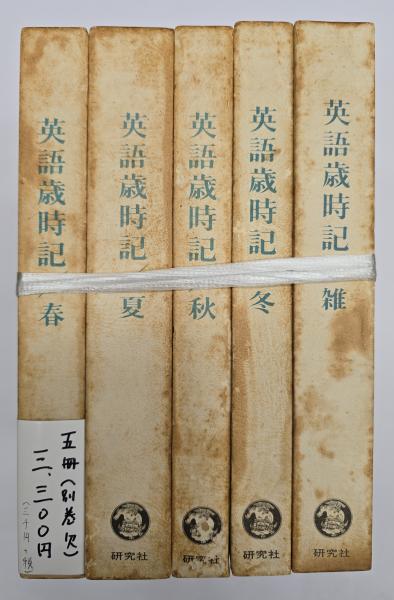 英語歳時記 春
英語歳時記 夏
英語歳時記 秋
英語歳時記 冬
英語歳時記 雑
五冊(別巻欠)
三、三〇〇円
研究社
研究社
研究社
研究社